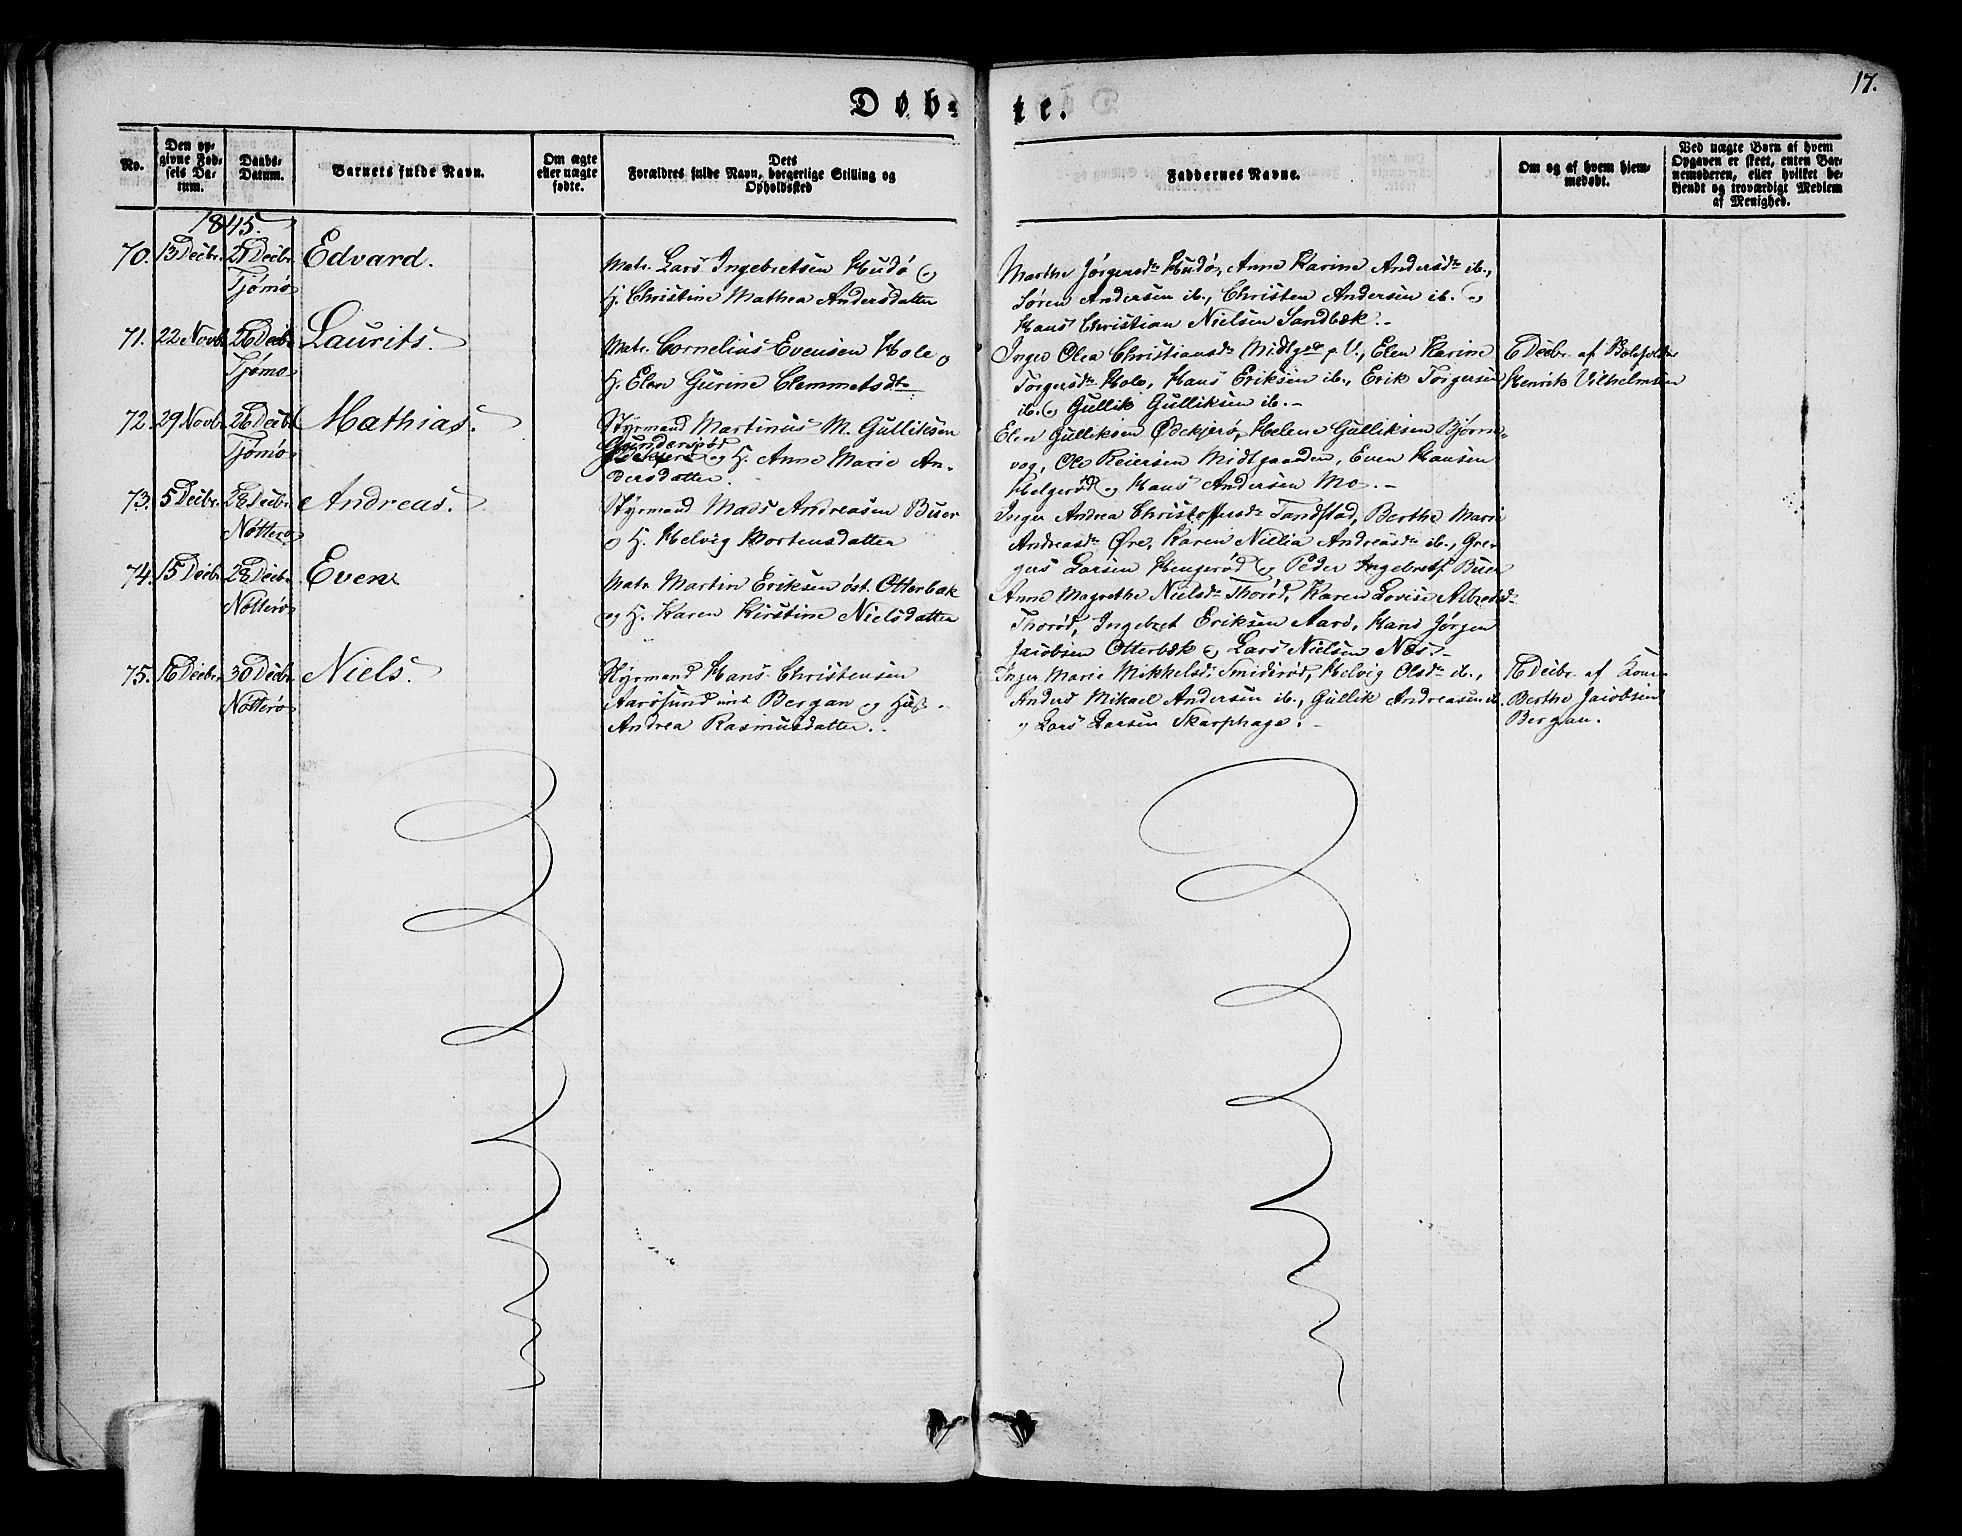 Døb-
te.
17.
No.
Den op-
givne Fød-
sels Da-
tum.
Daabs-
Datum.
Barnets fulde Navn.
Om ægte
eller uægte
fødte.
Dets
Forældres fulde Navn, borgerlige Stilling og
Opholdssted
Faddernes Navne.
Om og af hvem hjem-
medøbt.
Ved uægte Børn af hvem
Opgaven er skeet, enten Bar-
nemoderen, eller hvilket be-
kjendt og troværdigt Medlem
af Menighed.
1845.
70. 13 Decbr. 21 Decbr. Tjømø Edvard.
Matr. Lars Ingebretsen Hudø og
H. Christine Mathea Andersdatter
Marthe Jørgensdr Hudø, Anne Karine Andersdr ib.,
Søren Andersen ib., Christen Andersen ib. og
Hans Christian Nielsen Sandbæk.-
71. 22 Novb. 26 Decbr Tjømø Laurits.
Matr. Cornelius Evensen Hole og
H. Elen Gurine Clemmetsdtr
Inger Olea Christiansdr Midtgrd p V., Elen Karine
Torgersdr Hole, Hans Eriksen ib., Erik Torgersen
ib. og Gullik Gulliksen ib.-
Decbr. af
Henrik Vilhelmsen
72. 29 Novb. 26 Decbr Tjømø Mathias.
Styrmand Martinus M. Gulliksen
Gunderød og H. Anne Marie An-
dersdatter.
Elen Gulliksen Ødekjerø, Helene Gulliksen Bjørne-
vog, Ole Reiersen Midtgaarden, Even Hansen
Helgerød og Hans Andersen Mo.-
73. 5 Decbr. 28 Decbr. Nøtterø Andreas.
Styrmand Mads Andreasen Buer
og H. Helvig Mortensdatter
Inger Andrea Christoffersdr Tandstad, Berthe Marie
Andreasdr Øre, Karen Nielia Andreasdr ib., Gre-
gers Larsen Hengerød og Peder Ingebretss. Buer
74. 15 Decbr. 28 Decbr. Nøtterø Even
Matr Martin Eriksen øst. Otterbæk
og H. Karen Kirstine Nielsdatter
Anne Magrethe Nielsdr Thorød, Karen Lovise Albretsdr
Thorød, Ingebret Eriksen Aarø, Hans Jørgen
Jacobsen Otterbæk og Lars Nielsen Næs.-
75. 16 Decbr. 30 Decbr. Nøtterø Niels.
Styrmand Hans Christensen
Aarøsund Bergan og Hust.
Andrea Rasmusdatter.
Inger Marie Mikkelsdr Smidsrød, Helvig Olsdr ib.,
Anders Mikael Andersen ib., Gullik Andreasen ib.
og Lars Larsen Skarphage.-
Decbr. af Kone
Berthe Jacobsen
Bergan.